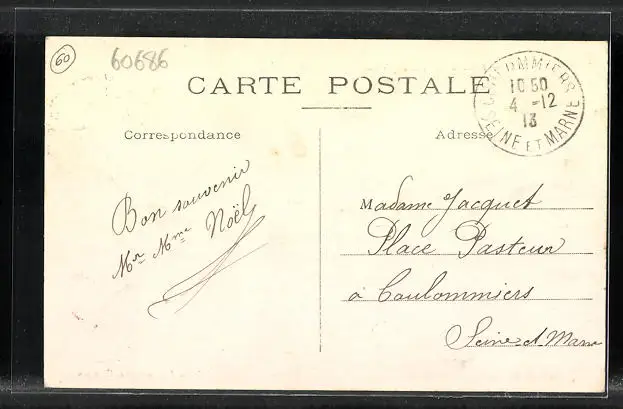 60
60686
CARTE POSTALE
COULOMMIERS
10 50
4 -12
13
SEINE ET MARNE
Correspondance
Adresse
Bon souvenir
Mr Mme Noël
Madame Jacquet
Place Pasteur
à Coulommiers
Seine et Marne